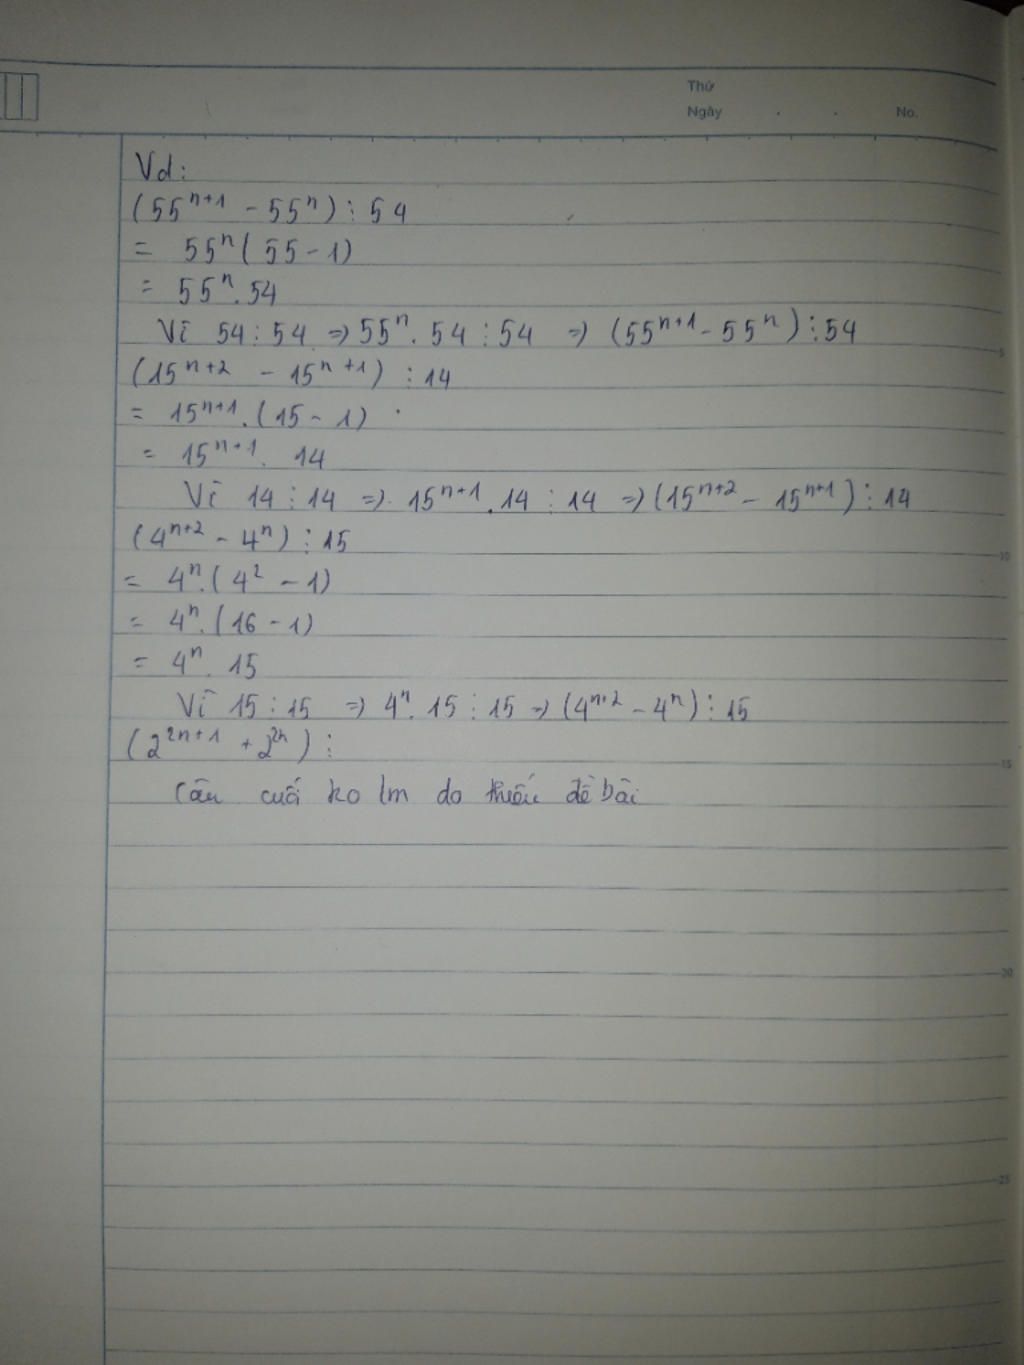 Thứ
Ngày . . No.
Vd:
(55ⁿ⁺¹ - 55ⁿ) ⋮ 54
= 55ⁿ ( 55 - 1)
= 55ⁿ . 54
Vì 54 ⋮ 54 => 55ⁿ . 54 ⋮ 54 => (55ⁿ⁺¹ - 55ⁿ) ⋮ 54
5
(15ⁿ⁺² - 15ⁿ⁺¹) ⋮ 14
= 15ⁿ⁺¹ . (15 - 1)
= 15ⁿ⁺¹ . 14
Vì 14 ⋮ 14 => 15ⁿ⁺¹ . 14 ⋮ 14 => (15ⁿ⁺² - 15ⁿ⁺¹) ⋮ 14
(4ⁿ⁺² - 4ⁿ) ⋮ 15
10
= 4ⁿ . (4² - 1)
= 4ⁿ . (16 - 1)
= 4ⁿ . 15
Vì 15 ⋮ 15 => 4ⁿ . 15 ⋮ 15 => (4ⁿ⁺² - 4ⁿ) ⋮ 15
(2²ⁿ⁺¹ + 2²ⁿ) ⋮
15
Câu cuối ko lm do thiếu đề bài
20
25